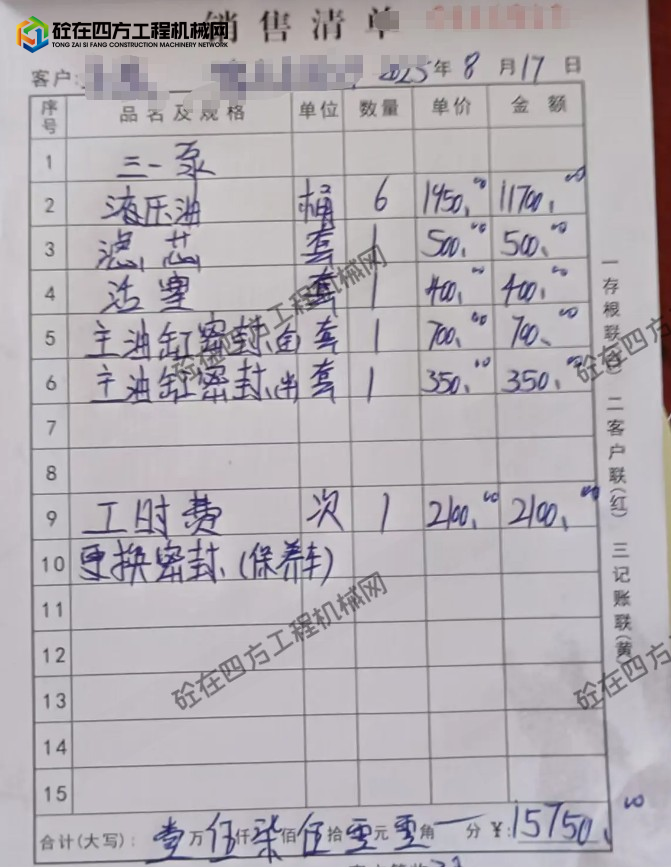 砼在四方工程机械网
TONG ZAI SI FANG CONSTRUCTION MACHINERY NETWORK
销售清单
客户: 2025年8月17日
序号 品名及规格 单位 数量 单价 金额
1 三一泵
2 液压油 桶 6 1950.00 11700.00
3 滤芯 套 1 500.00 500.00
4 活塞 套 1 400.00 400.00
5 主油缸密封. 套 1 700.00 700.00
6 主油缸密封. 套 1 350.00 350.00
7
8
9 工时费 次 1 2100.00 2100.00
10 更换密封.(保养车)
11
12
13
14
15
合计(大写): 壹万伍仟柒佰伍拾零元零角一分 ¥:15750.00
一存根联(白) 二客户联(红) 三记账联(黄
砼在四方工程机械网
砼在四方工程机械网
砼在四方工程
砼在四方工程